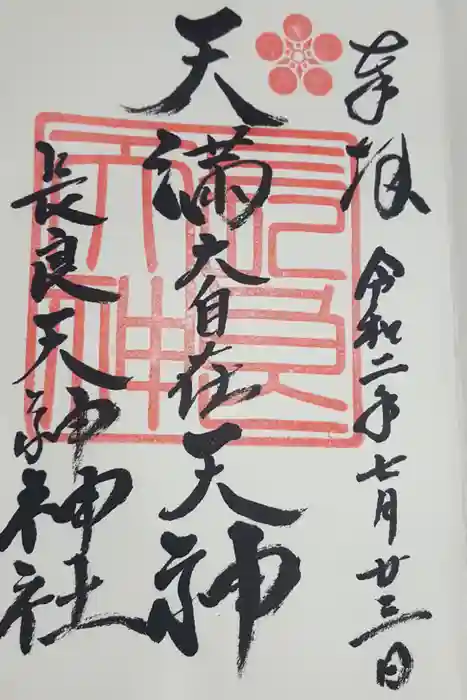 奉拝
令和二年七月廿三日
天満大自在天神
長良天神神社
長良天神